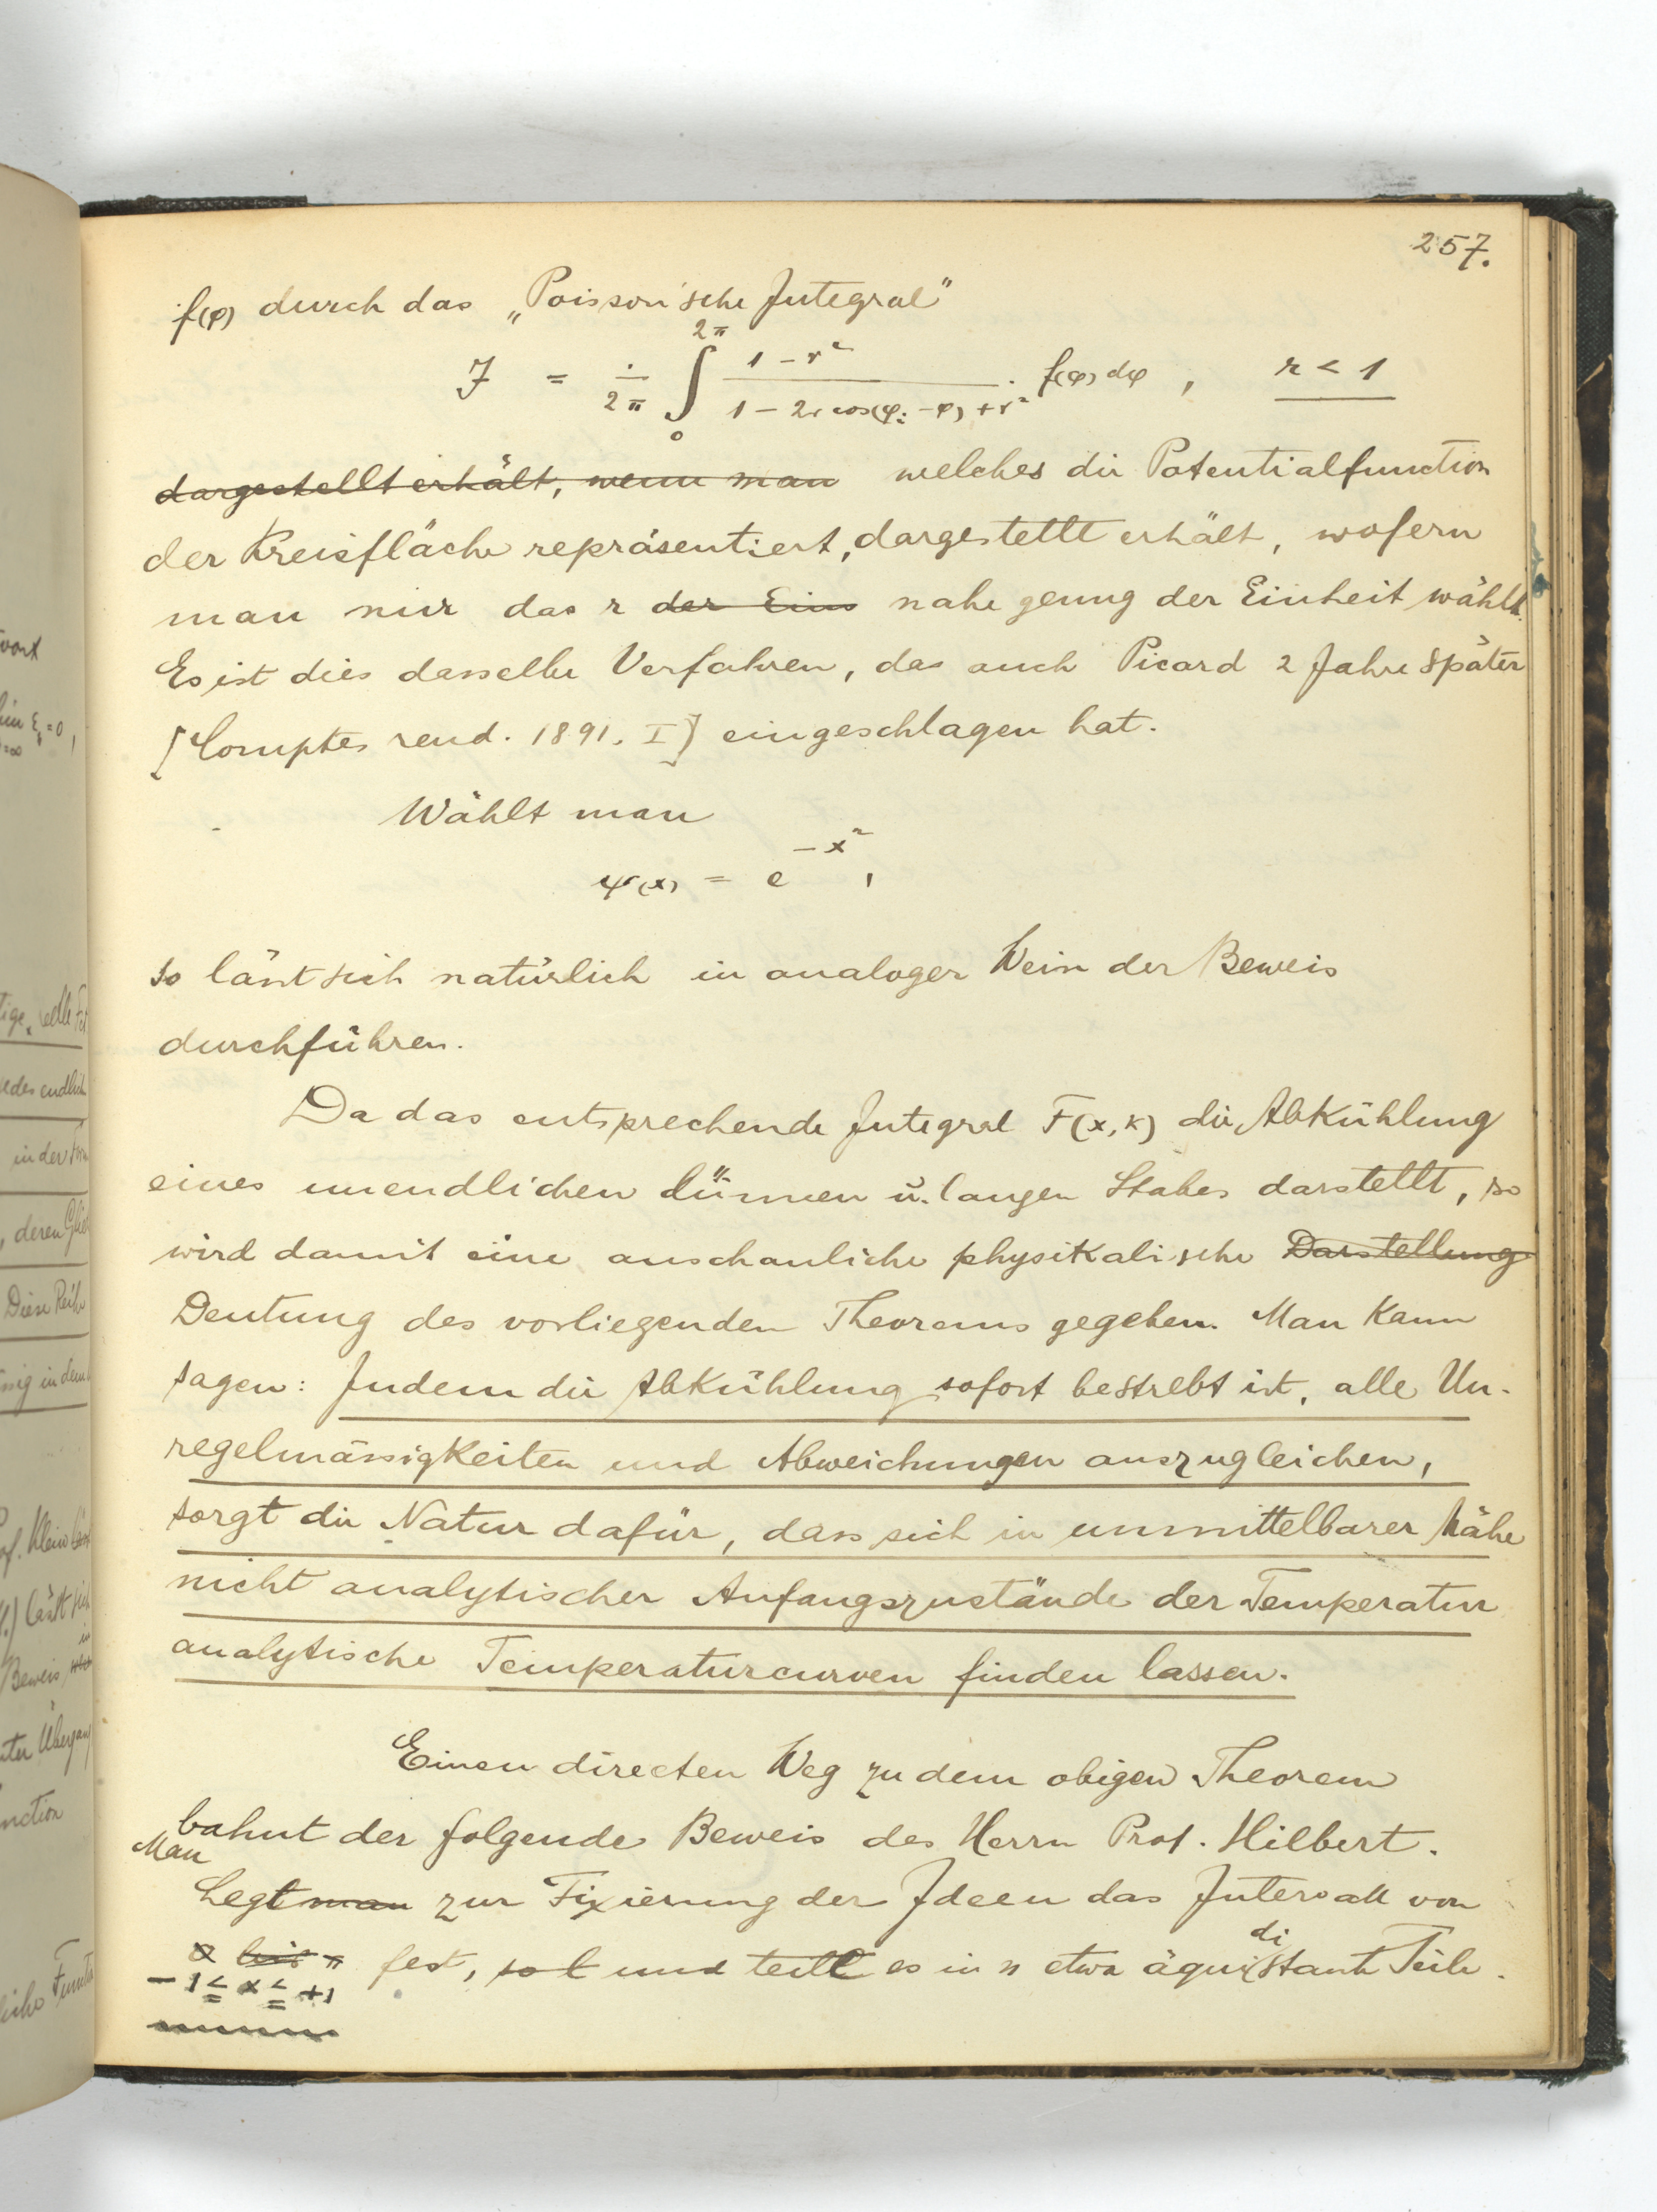 257.
f(φ) durch das „Poisson'sche Integral"
J = 1/2π ∫₀^2π (1 - r²)/(1 - 2r cos(φ_i - φ) + r²) · f(φ) dφ , r < 1
dargestellt erhält, wenn man welches die Potentialfunction
der Kreisfläche repräsentiert, dargestellt erhält, wofern
man nur das r der Eins nahe genug der Einheit wählt.
Es ist dies dasselbe Verfahren, das auch Picard 2 Jahre später
[Comptes rend. 1891. I] eingeschlagen hat.
Wählt man
ψ(x) = e^-x² ,
so lässt sich natürlich in analoger Weise der Beweis
durchführen.
Da das entsprechende Integral F(x,k) die Abkühlung
eines unendlichen dünnen u. langen Stabes darstellt, so
wird damit eine anschauliche physikalische Darstellung
Deutung des vorliegenden Theorems gegeben. Man kann
sagen: Indem die Abkühlung sofort bestrebt ist, alle Un-
regelmässigkeiten und Abweichungen auszugleichen,
sorgt die Natur dafür, dass sich in unmittelbarer Nähe
nicht analytischer Anfangszustände der Temperatur
analytische Temperaturcurven finden lassen.
Einen directen Weg zu dem obigen Theorem
bahnt der folgende Beweis des Herrn Prof. Hilbert.
Man
Legt man zur Fixierung der Ideen das Intervall von
0 bis π fest, so t und teilt es in n etwa äquidistante Teile.
-1 ≤ x ≤ +1
wort
lim ε = 0,
=∞
jedes endliche
in der
, deren Glie
Diese Reihe
ssig in dem
Prof. Klein
lässt sich
in
Beweis
Übergang
nction